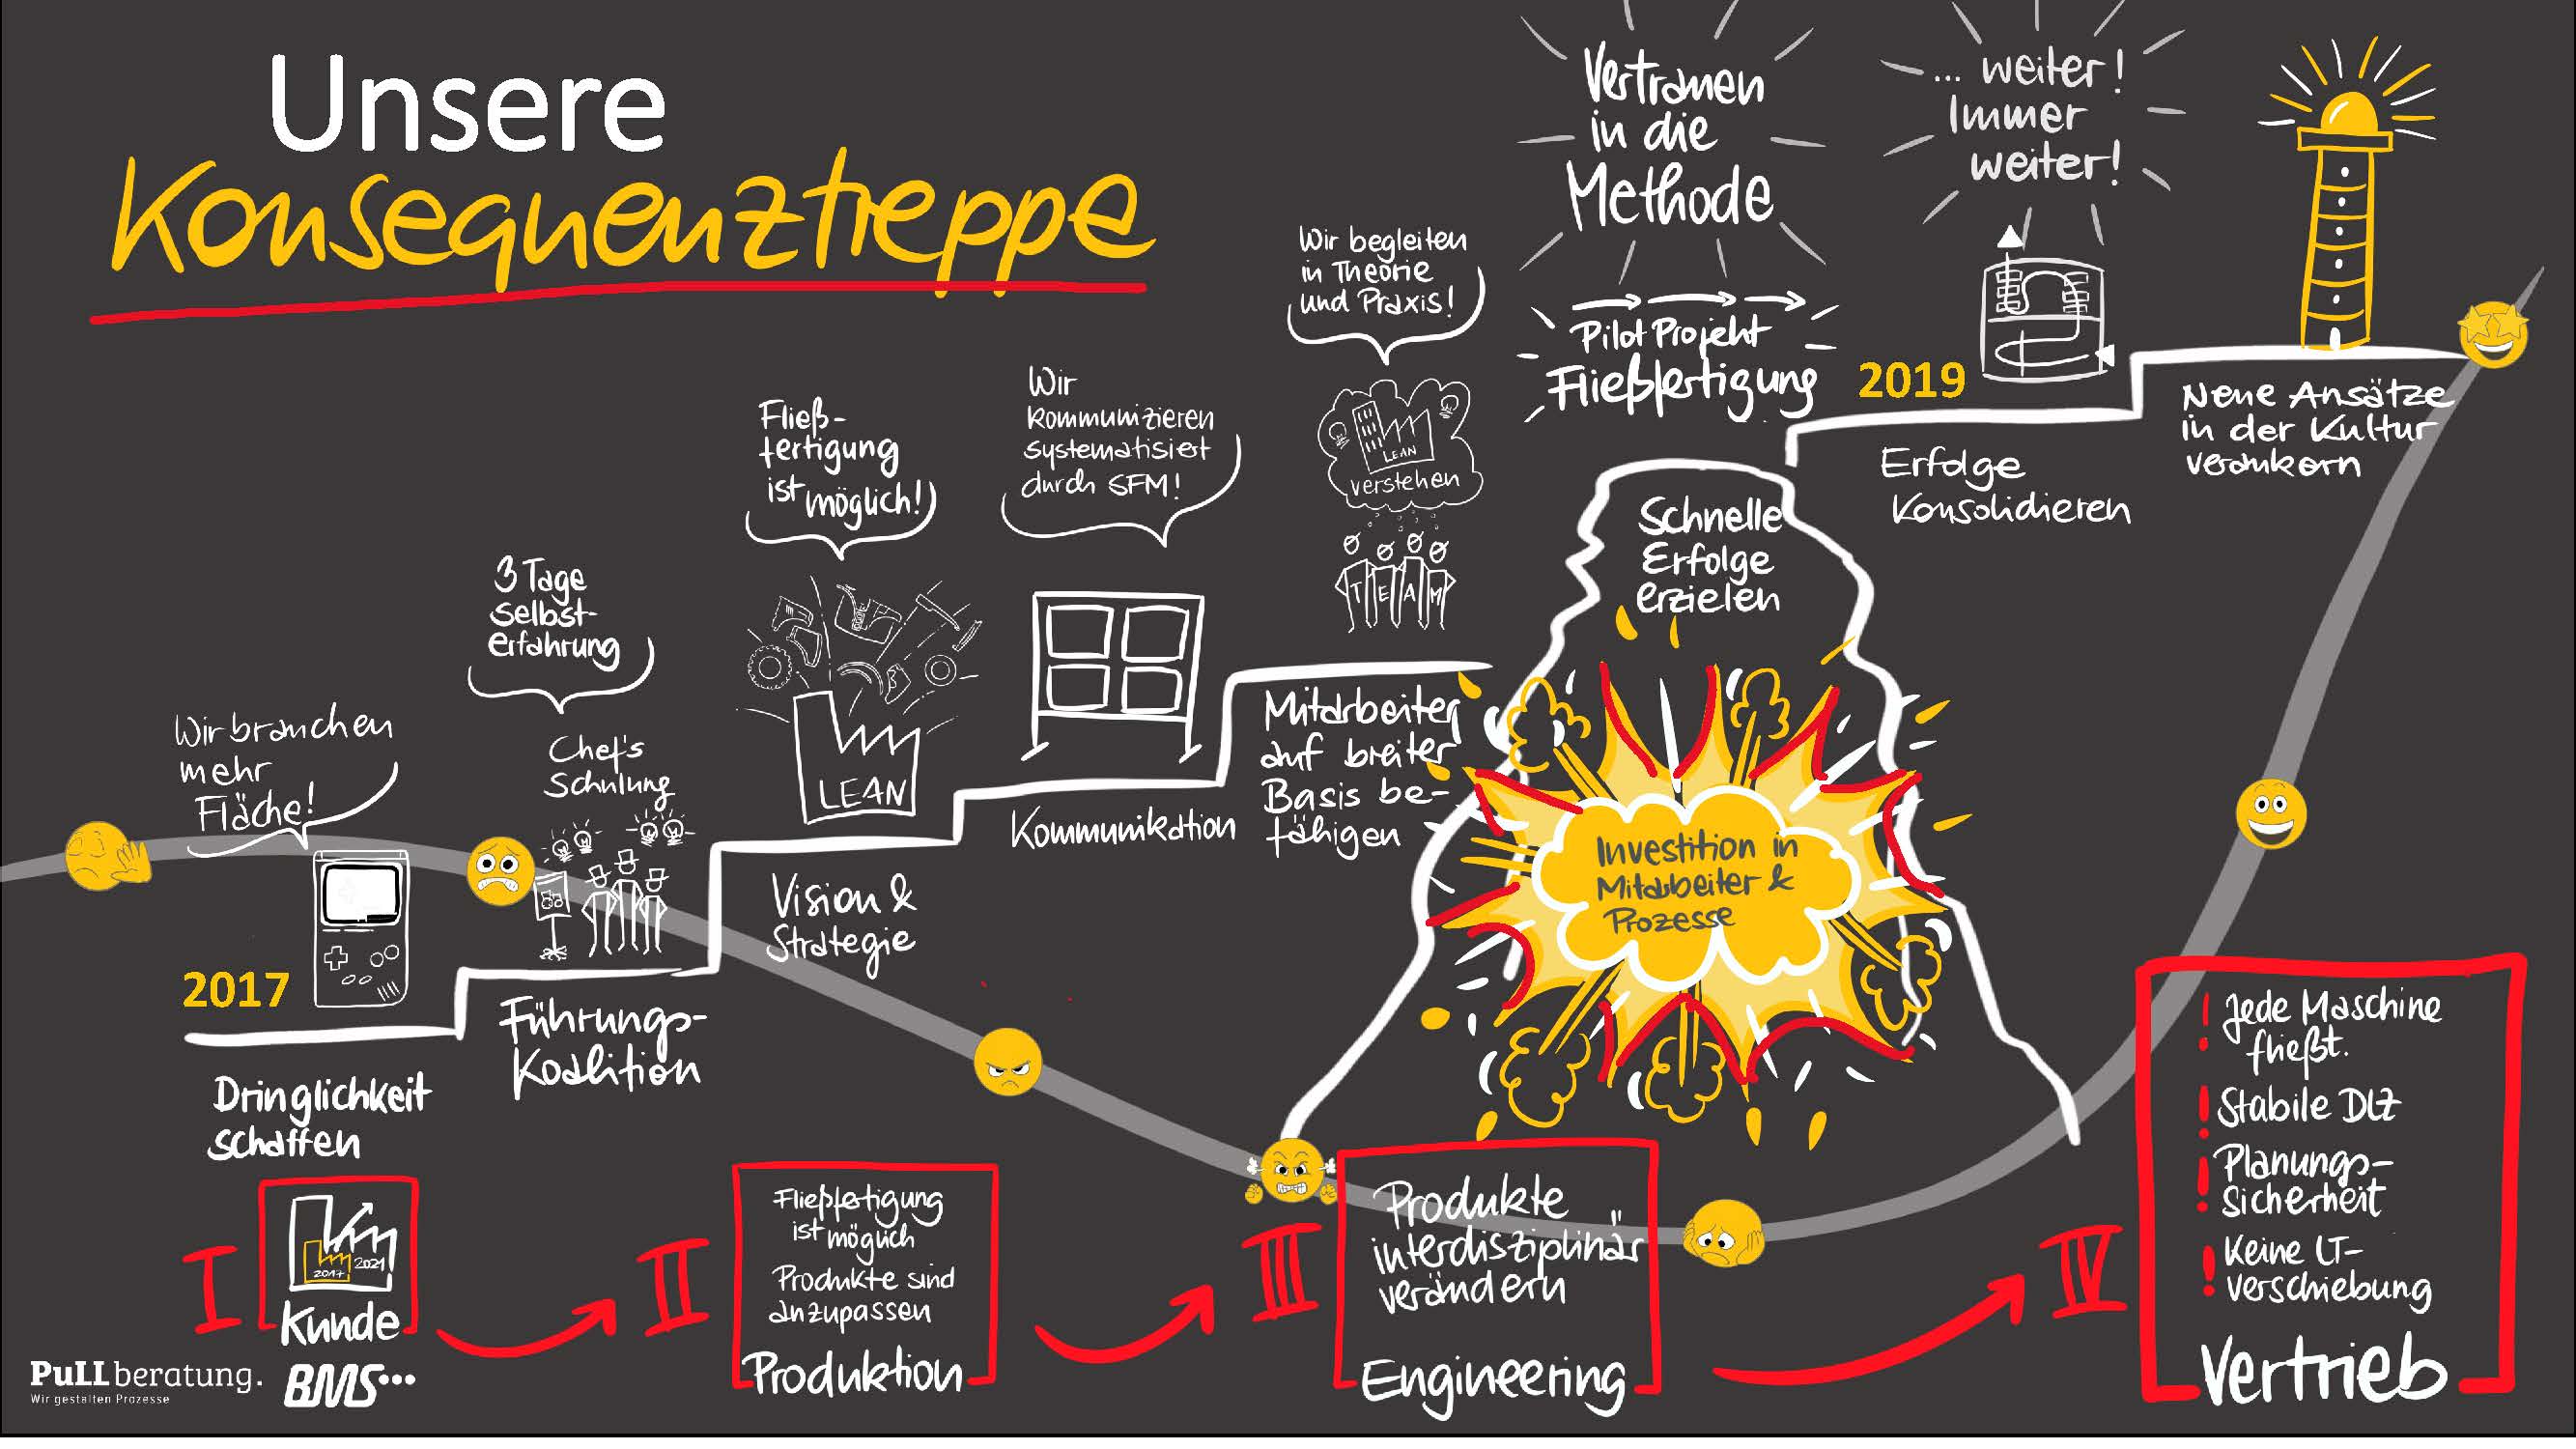 Unsere
Konsequenztreppe
Wir brauchen
mehr
Fläche!
2017
Dringlichkeit
schaffen
3 Tage
Selbst-
erfahrung
Chef's
Schulung
Führungs-
Koalition
Fließ-
fertigung
ist möglich!
LEAN
Vision &
Strategie
Wir
kommunizieren
systematisiert
durch SFM!
Kommunikation
Wir begleiten
in Theorie
und Praxis!
LEAN
verstehen
TEAM
Mitarbeiter
auf breiter
Basis be-
fähigen
Vertrauen
in die
Methode
Pilot Projekt
Fließfertigung
Schnelle
Erfolge
erzielen
Investition in
Mitarbeiter &
Prozesse
... weiter!
Immer
weiter!
2019
Erfolge
Konsolidieren
Neue Ansätze
in der Kultur
verankern
I
2017 2021
Kunde
BMS...
II
Fließfertigung
ist möglich
Produkte sind
anzupassen
Produktion
III
Produkte
interdisziplinär
verändern
Engineering
IV
! Jede Maschine
fließt.
! Stabile DLZ
! Planungs-
Sicherheit
! Keine LT-
verschiebung
Vertrieb
PuLL beratung.
Wir gestalten Prozesse